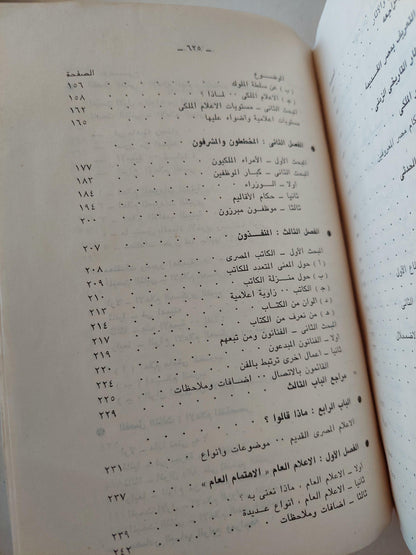 — ٦٢٥ —
الموضوع الصفحة
(ب) عن سلطة الملوك ١٥٦
(ج) الاعلام الملكى ٠٠ لماذا ؟ ١٥٨
المبحث الثانى ـ مستويات الاعلام الملكى ١٦٢
مستويات اعلامية وأضواء عليها ١٦٥
الفصل الثانى : المخططون والمشرفون
المبحث الأول ـ الأمراء الملكيون ١٧٧
المبحث الثانى ـ كبار الموظفين ١٨٣
اولا ـ الوزراء ١٨٤
ثانيا ـ حكام الأقاليم ١٩٤
ثالثا ـ موظفون مبرزون ٢٠٠
الفصل الثالث : المنفذون ٢٠٧
المبحث الأول ـ الكاتب المصرى ٢٠٨
(أ) حول المعنى المتعدد للكاتب ٢٠٩
(ب) حول منزلة الكاتب ٢١٠
(ج) الكاتب ٠٠ زاوية اعلامية ٢١٣
(د) الوان من الكتاب ٢١٤
(هـ) من نعرف من الكتاب ٢١٩
المبحث الثانى ـ الفنانون ومن تبعهم
أولا ـ الفنانون المبدعون ٢٢٠
ثانيا ـ اعمال اخرى ترتبط بالفن ٢٢٤
القائمون بالاتصال ٠٠ اضافات وملاحظات ٢٢٥
مراجع الباب الثالث ٢٢٩
الباب الرابع : ماذا قالوا ؟
الاعلام المصرى القديم ٠٠ موضوعات وانواع ٢٣١
الفصل الأول : الاعلام العام « الاهتمام العام » ٢٣٧
اولا ـ الاعلام العام ، ماذا نعنى به ؟
ثانيا ـ الاعلام العام ، انواع عديدة ٢٣٩
ثالثا ـ اضافات وملاحظات ٢٤٢